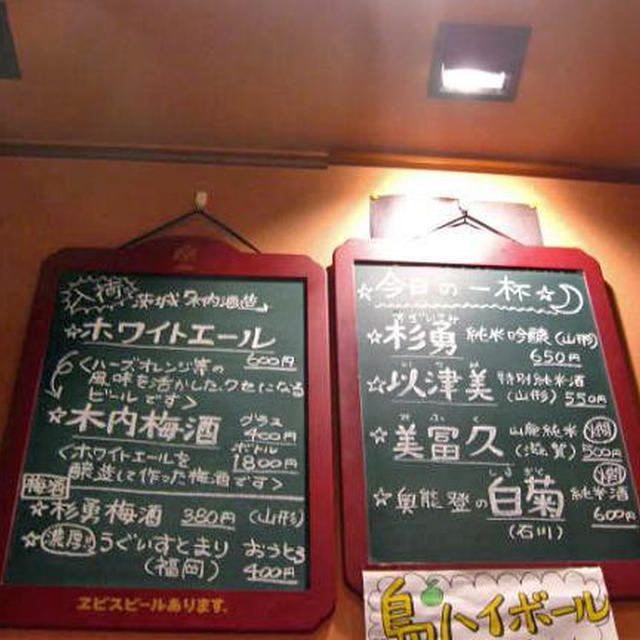 入荷 茨城 木内酒造
☆ホワイトエール
600円
<ハーブ・オレンジ等の
風味を活かした、クセになる
ビールです>
☆木内梅酒 グラス
400円
ボトル
1800円
<ホワイトエールを
醸造して作った梅酒です>
梅酒
☆杉勇梅酒 380円 (山形)
☆濃厚!! うぐいすとまり
(福岡) 400円
ヱビスビールあります。
☆今日の一杯☆
☆杉勇 純米吟醸 (山形)
650円
☆以津美 特別純米酒
(山形) 550円
み ふ く
☆美冨久 山廃純米 燗
(滋賀) 500円
燗
☆奥能登の白菊 純米酒
(石川) 600円
鳥ハイボール